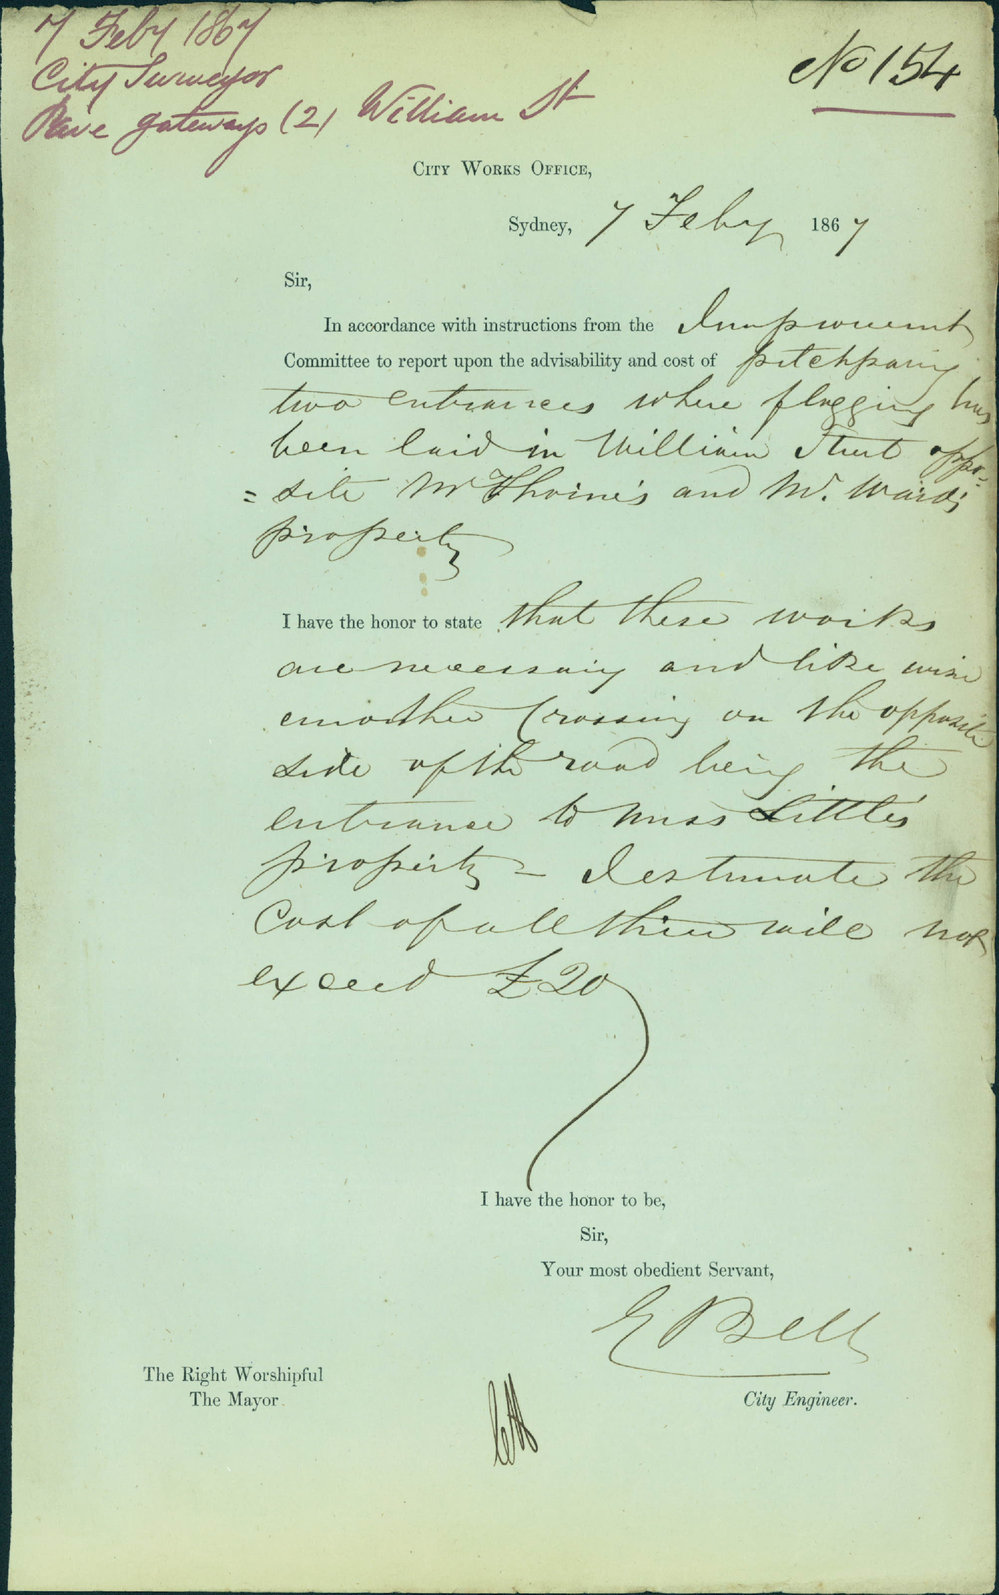 7 Feby 1867
City Surveyor
Pave gateways (2) William St
No 154
City Works Office,
Sydney, 7 Feby 1867
Sir,
In accordance with instructions from the Improvement
Committee to report upon the advisability and cost of pitchpaving
two entrances where flagging has
been laid in William Street oppo=
=site Mr Thorne's and Mr. Ward's
property
I have the honor to state that these works
are necessary and likewise
another Crossing on the opposite
side of the road being the
entrance to Miss Little's
property – I estimate the
Cost of all three will not
exceed £20
I have the honor to be,
Sir,
Your most obedient Servant,
E Bell
The Right Worshipful
The Mayor.
City Engineer.